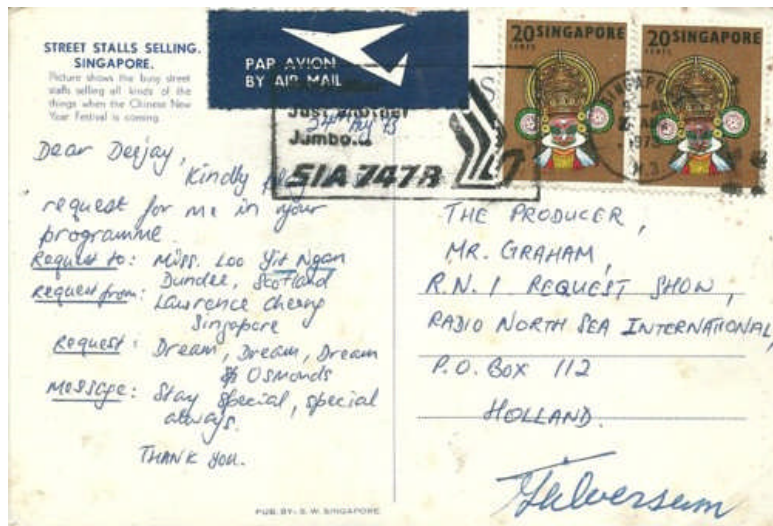 STREET STALLS SELLING.
SINGAPORE.
Picture shows the busy street
stalls selling all kinds of the
things when the Chinese New
Year Festival is coming.
PAR AVION
BY AIR MAIL
20 SINGAPORE
CENTS
20 SINGAPORE
CENTS
Just Another
Jumbo.
SIA 747B
SINGAPORE
1973
24th Aug 73
Dear Deejay,
Kindly play
request for me in your
programme.
Request to: Miss. Loo Yit Ngan
Dundee, Scotland
Request from: Lawrence Cheng
Singapore
Request: Dream, Dream, Dream
Osmonds
Message: Stay special, special
always.
THANK YOU.
THE PRODUCER,
MR. GRAHAM,
R.N.I REQUEST SHOW,
RADIO NORTH SEA INTERNATIONAL,
P.O. BOX 112
HOLLAND.
Hilversum
PUB. BY: S. W. SINGAPORE